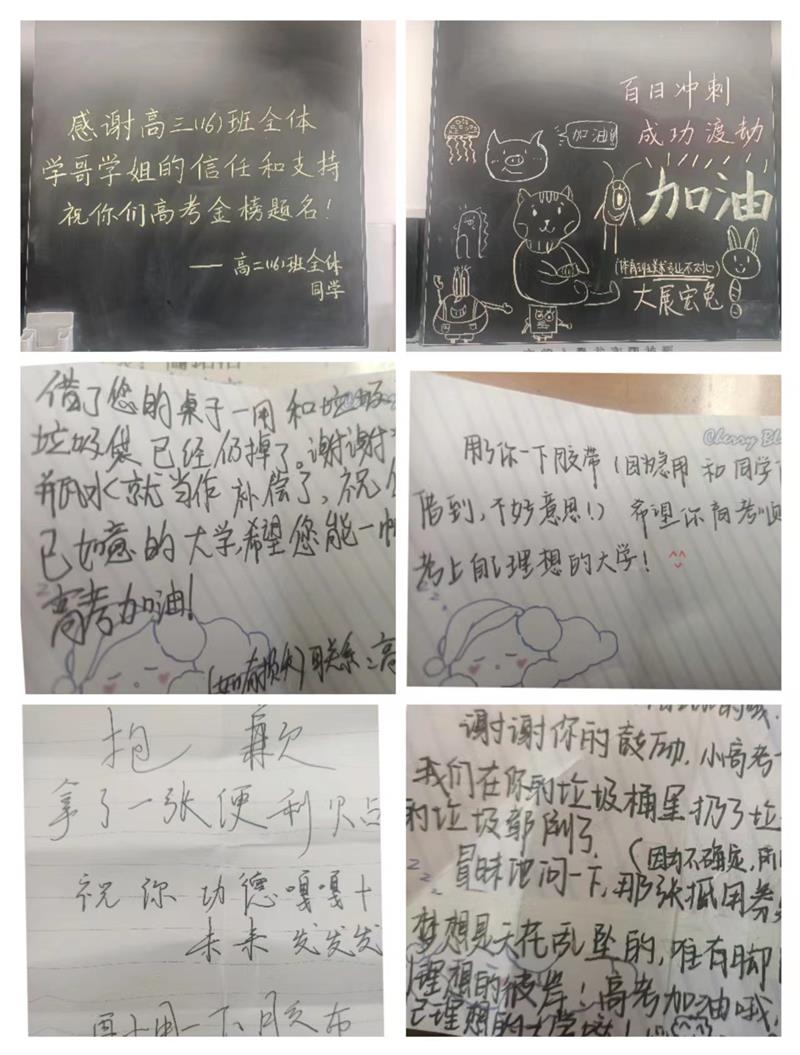 感谢高三(16)班全体
学哥学姐的信任和支持
祝你们高考金榜题名!
—— 高二(16)班全体
同学
百日冲刺
成功渡劫
加油!
加油
(体育班美术专业不对口)
大展宏兔
借了您的桌子一用和垃圾
垃圾袋已经仍掉了。谢谢
瓶水就当作补偿了,祝
己如意的大学,希望您能一帆
高考加油!
(如有损失)可联系:高
Cherry Bl
用了你一下胶带(因急用和同学
借到,不好意思!)希望你高考顺
考上自己理想的大学!^^
抱歉
拿了一张便利贴
祝你功德嘎嘎+
未来发发发
再借用一下胶布
谢谢你的鼓励,小高考
我们在你的垃圾桶里扔了垃
的垃圾都倒了
(因为不确定,所
冒昧地问一下,那张抵用券
梦想是天花乱坠的,唯有脚
理想的彼岸!高考加油哦,
己理想的大学